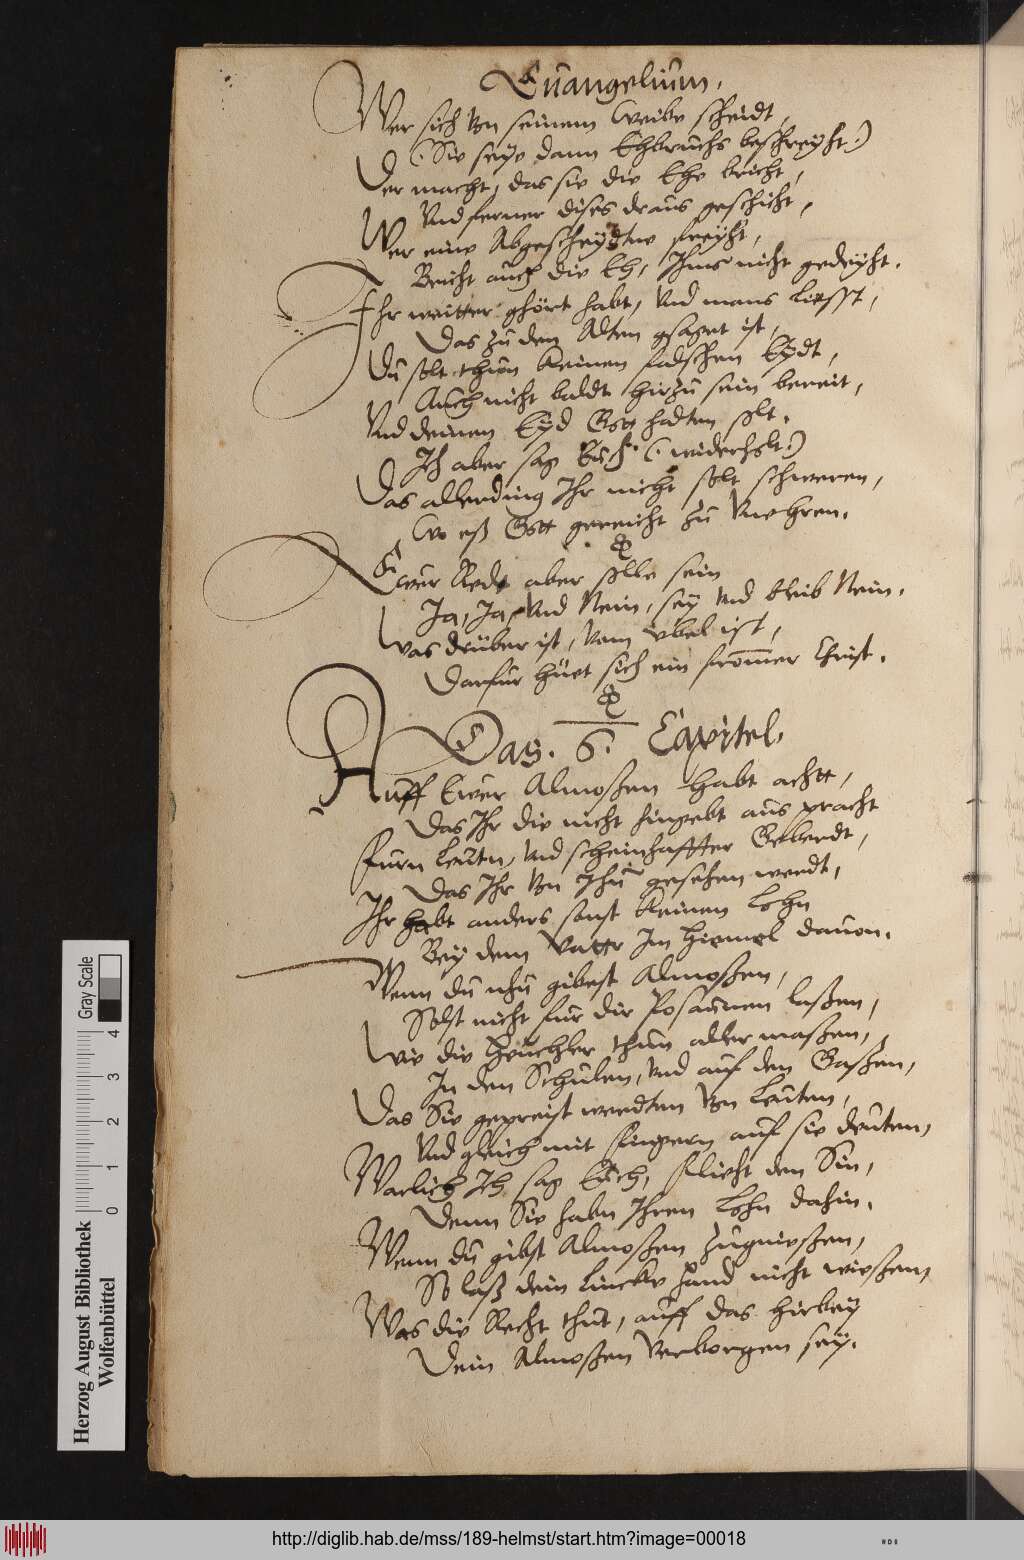 Euangelium.
Wer sich von seinem Weibe scheidt,
(: Sie seÿe dann Ehbruchs beschreÿht :)
Der macht, das sie die Ehe bricht,
Vnd ferner dises draus geschicht,
Wer eine Abgescheÿdtne freÿht,
Bricht auch die Eh, Ihms nicht gedeÿht.
Ihr weitter ghört habt, Vnd mans liesst,
Das zu den Alten gsaget ist,
Du solt thun keinen falschen Eÿdt,
Auch nicht baldt hirzu sein bereit,
Vnd deinen Eÿd Gott halten solt.
Ich aber sag Euch (: widerholt :)
Das allerding Ihr nicht solt schweren,
Wo eß Gott gereicht zu Vnehren.
Ewer Rede aber solle sein
Ja, Ja, Vnd Nein, seÿ vnd bleib Nein.
Was drüber ist, Vom übel ist,
Darfur hüet sich ein frommer Christ.
Das. 6. Capitel.
Auff Ewer Almoßen habt achtt,
Das Ihr die nicht hingebt aus pracht
Fürn Leutn, Vnd scheinhaffter Geberdt,
Das Ihr von Ihn gesehen werdt,
Ihr habt anders sonst keinen Lohn
Beÿ dem Vattr Im Himel dauon.
Wenn du nhu gibest Almoßen,
Solst nicht fur dir Posaunen laßen,
Wie die Heuchler thun aller maßen,
In den Schulen, Vnd auf den Gaßen,
Das Sie gepreist werdten von Leuten,
Vnd gleich mit fingern auf sie deuten,
Warlich Ich sag Euch, flieht den Sin,
Denn Sie habn Ihren Lohn dahin.
Wenn du gibst Almoßen zugnießen,
So laß dein Lincke Hand nicht wießen,
Was die Recht thut, auff das hirbeÿ
Dein Almoßen Verborgen seÿ.
Gray Scale
0 1 2 3 4
Herzog August Bibliothek
Wolfenbüttel
http://diglib.hab.de/mss/189-helmst/start.htm?image=00018